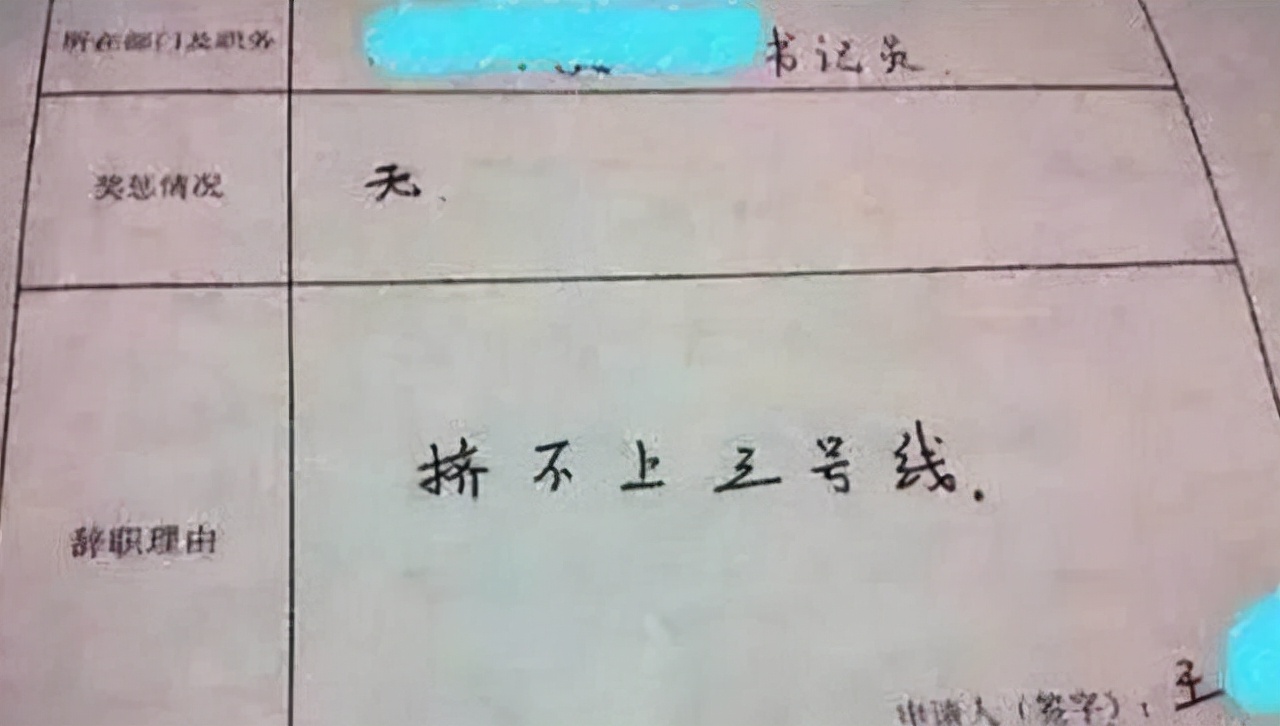 所在部门及职务 书记员.
奖惩情况 无.
挤不上三号线.
辞职理由
申请人（签字）：王